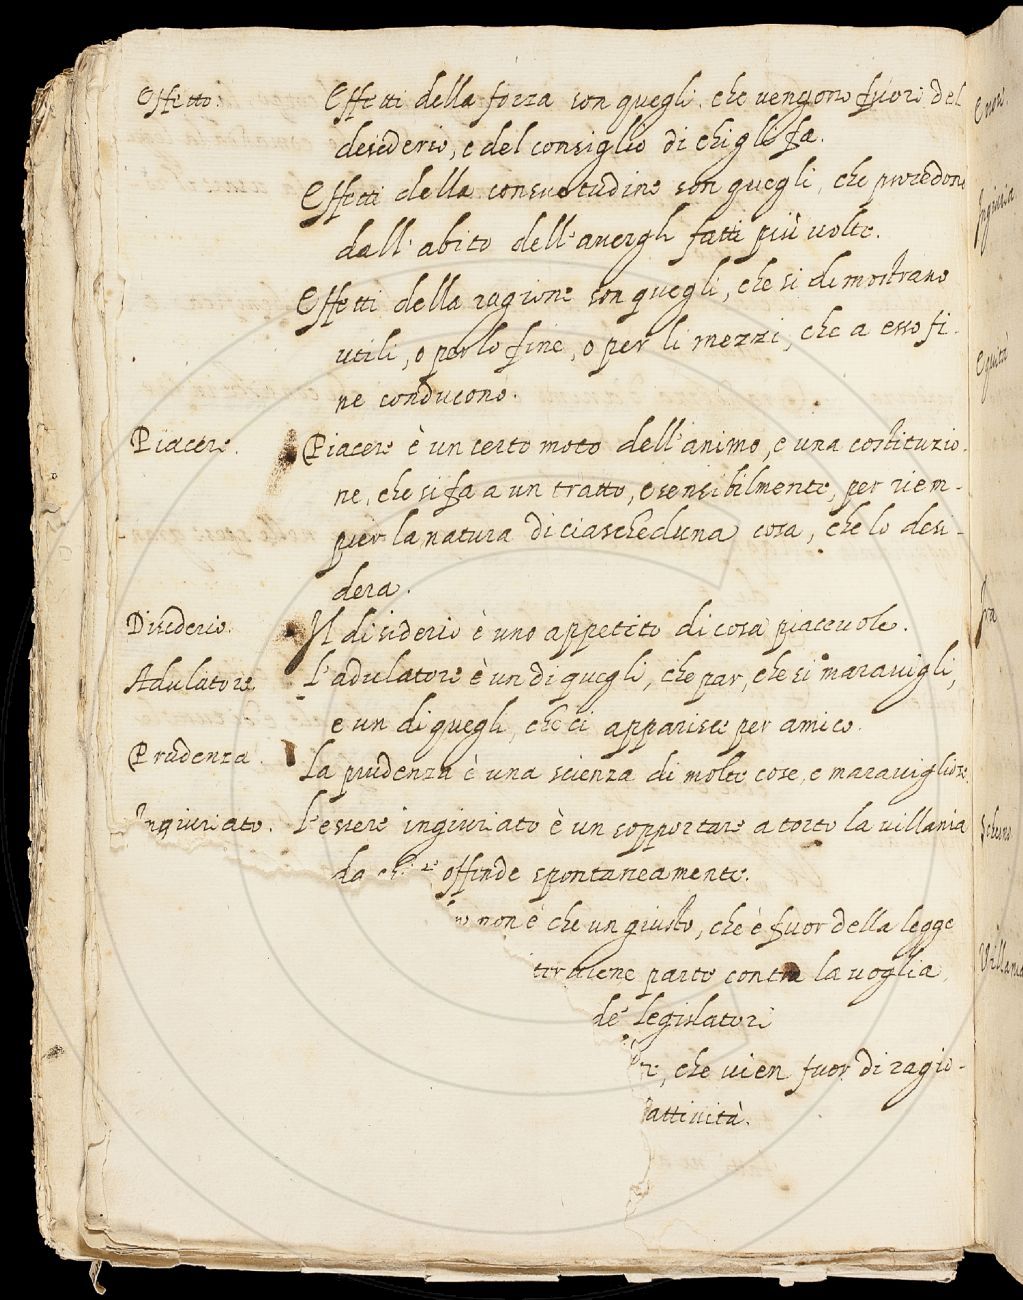 Effetto. Effetti della forza son quegli, che vengono fuori del
desiderio, e del consiglio di chi gli fa.
Effetti della consuetudine son quegli, che procedono
dall'abito dell'avergli fatti più volte.
Effetti della ragione son quegli, che si dimostrano
utili, o per lo fine, o per li mezzi, che a esso fi-
ne conducono.
Piacere. Piacere è un certo moto dell'animo, e una costituzio-
ne, che si fa a un tratto, e sensibilmente, per riem-
pier la natura di ciascheduna cosa, che lo desi-
dera.
Disiderio. Il disiderio è uno appetito di cosa piacevole.
Adulatore. L'adulatore è un di quegli, che par, che si maravigli,
e un di quegli, che ci apparisce per amico.
Prudenza. La prudenza è una scienza di molte cose, e maravigliose.
Ingiuriato. L'essere ingiuriato è un sopportare a torto la villania
da offende spontaneamente.
non è che un giusto, che è fuor della legge
parte contra la voglia
de' legislatori
che vien fuor di ragio-
attività.
Ingiuria
Equità
Ira
Scherno
Villania